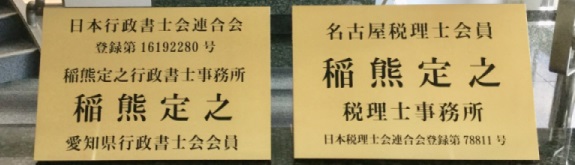 日本行政書士会連合会
登録第16192280号
稲熊定之行政書士事務所
稲熊定之
愛知県行政書士会会員
名古屋税理士会会員
稲熊定之
税理士事務所
日本税理士会連合会登録第78811号